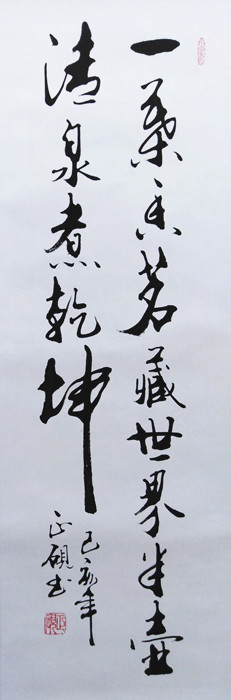 一葉香茗藏世界半壶
清泉煮乾坤
己亥年
正硯书